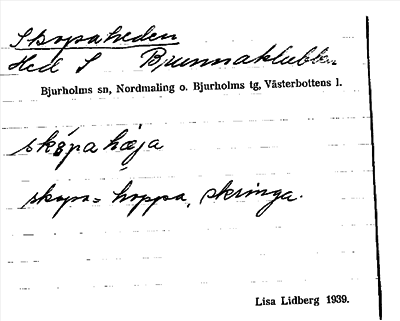 Skopaheden
Hed S Brunnaklubben
Bjurholms sn, Nordmaling o. Bjurholms tg, Västerbottens l.
skǫ́pahæ̀ja
skopa = hoppa, skringa.
Lisa Lidberg 1939.